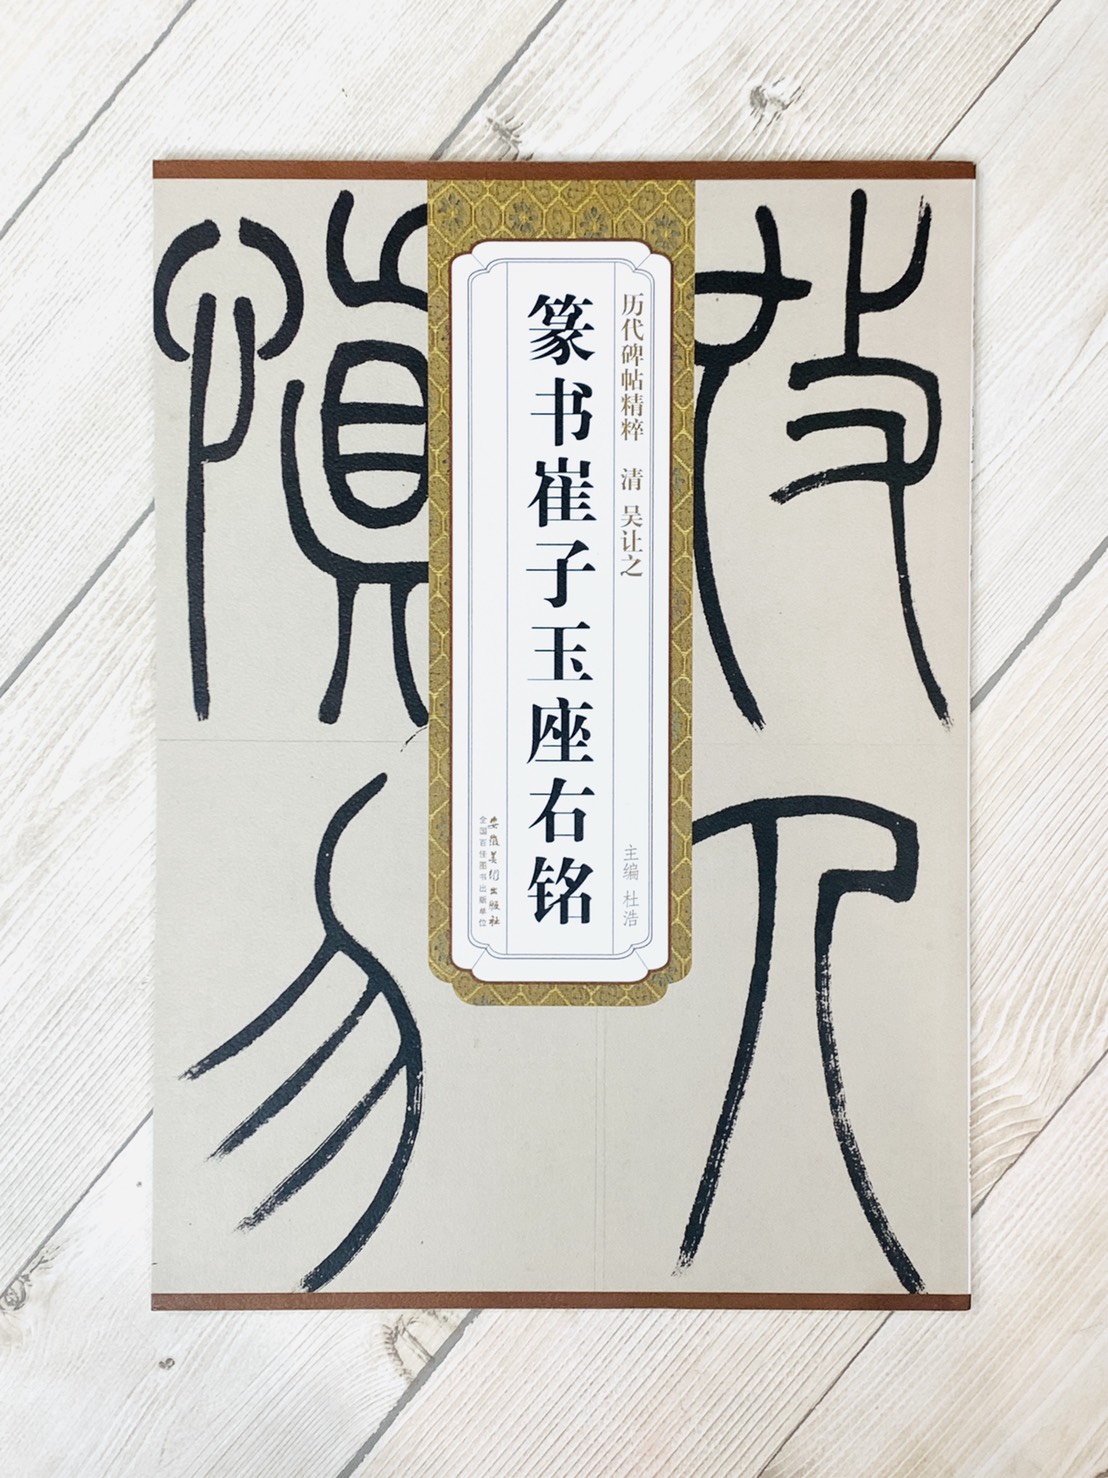 施人
慎勿
历代碑帖精粹 清 吴让之
篆书崔子玉座右铭
主编 杜浩
安徽美术出版社
全国百佳图书出版单位